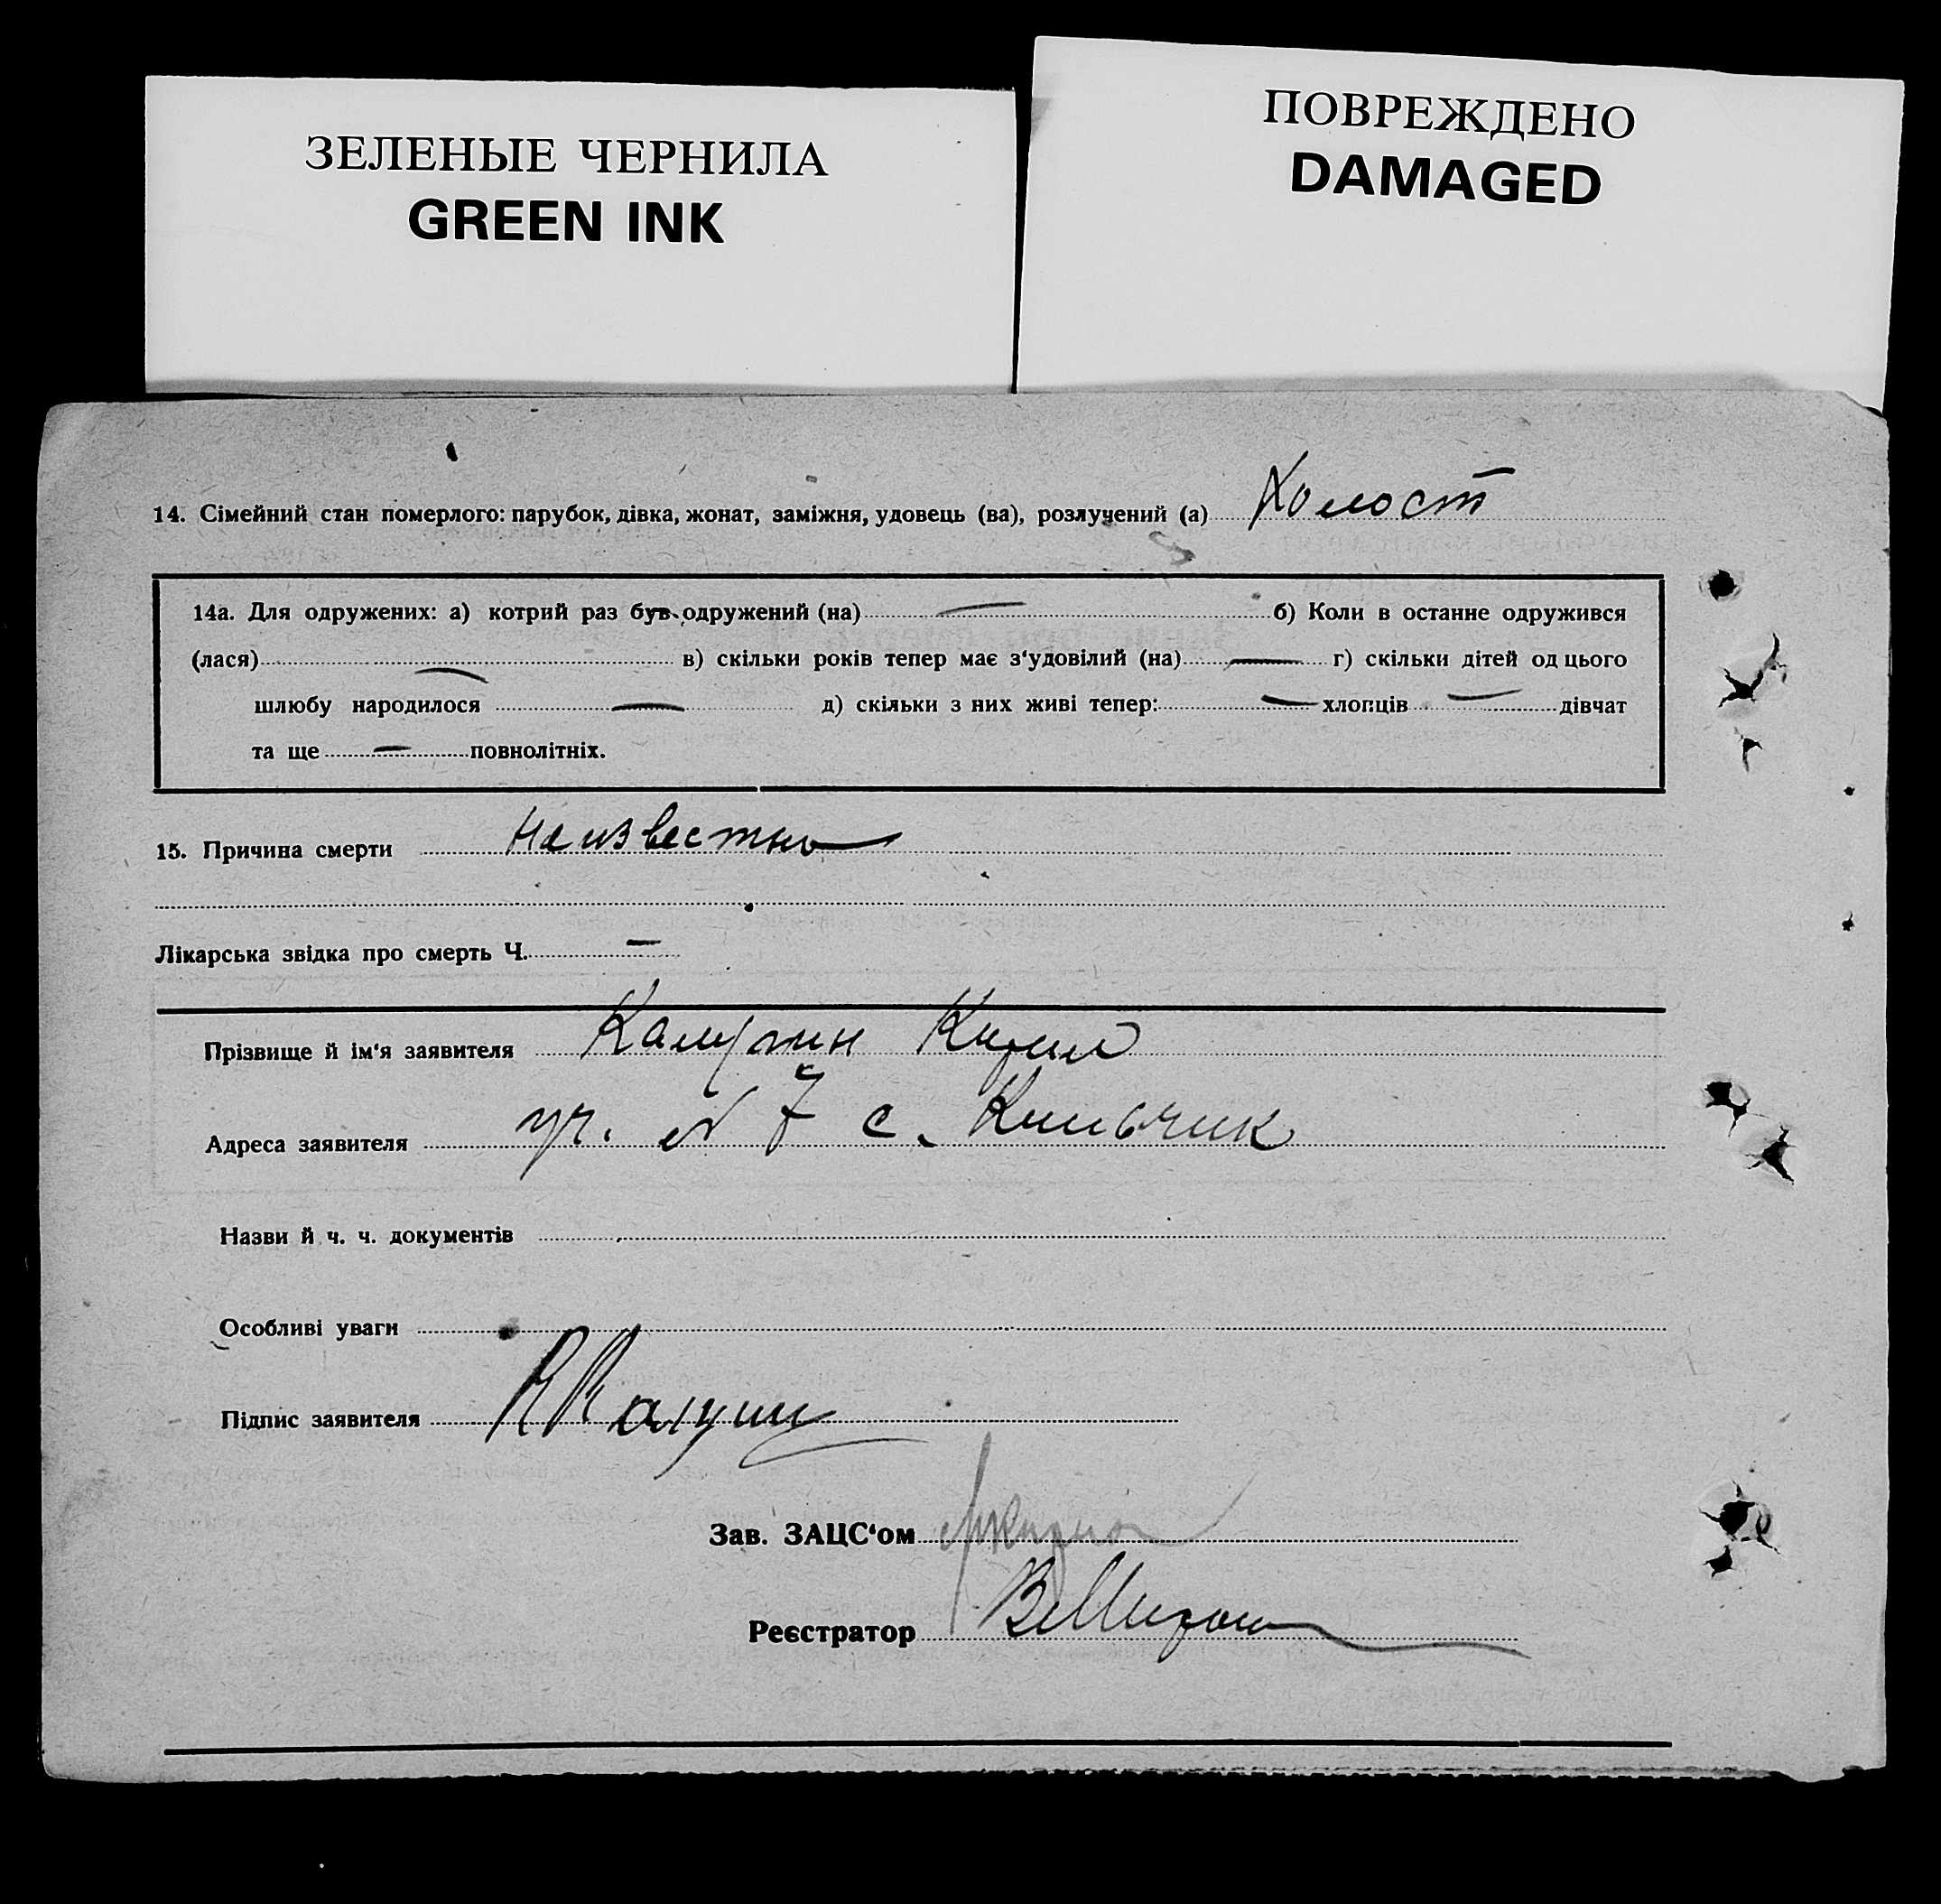 ЗЕЛЕНЫЕ ЧЕРНИЛА
GREEN INK
ПОВРЕЖДЕНО
DAMAGED
14. Сімейний стан померлого: парубок, дівка, жонат, заміжня, удовець (ва), розлучений (а) Холост
14а. Для одружених: а) котрий раз був одружений (на) — б) Коли в останнє одружився
(лася) — в) скільки років тепер має з‘удовілий (на) — г) скільки дітей од цього
шлюбу народилося — д) скільки з них живі тепер: — хлопців — дівчат
та ще — повнолітніх.
15. Причина смерти неизвестно
Лікарська звідка про смерть Ч. —
Прізвище й ім‘я заявителя
Адреса заявителя уч. № 7 с. Кильчик
Назви й ч. ч. документів
Особливі уваги
Підпис заявителя
Зав. ЗАЦС‘ом
Реєстратор